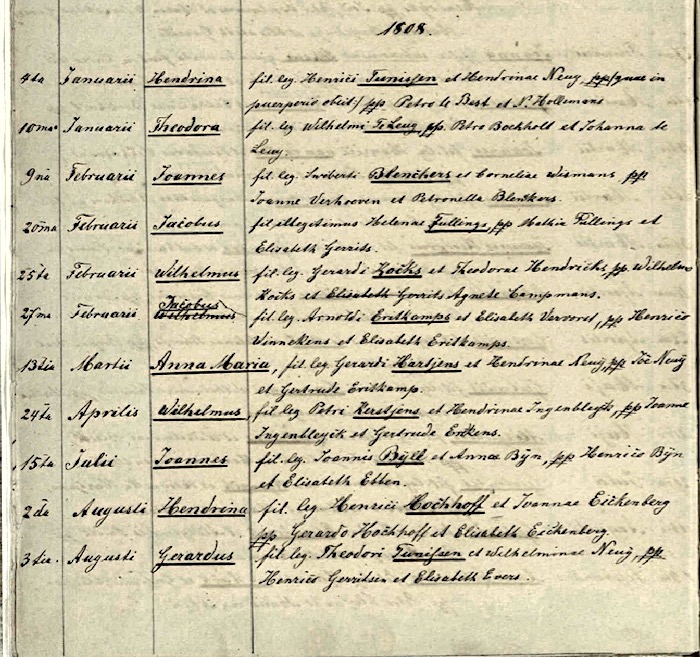 1808.
4ta Januarii Hendrina fil. leg. Henrici Tunissen et Hendrinae Neuy pp/quae in
puerperio obiit/ pp Petro te Best et N. Hollemans
10ma Januarii Theodora fil. leg. Wilhelmi Te Leuy, pp. Petro Bockholt et Johanna te
Leuy.
9na Februarii Joannes fil. leg. Swiberti Blenckers et Corneliae Wismans pp
Joanne Verhoeven et Petronella Blenkers.
20ma Februarii Jacobus fil illegitimus Helenae Fullings, pp Mathia Fullings et
Elisabeth Gerrits.
25ta Februarii Wilhelmus fil. leg. Gerardi Kocks et Theodorae Hendricks, pp. Wilhelmo
Kocks et Elisabeth Gerrits Agnete Campmans.
27ma Februarii Jacobus Wilhelmus fil. leg. Arnoldi Eritkamps et Elisabeth Vervorst, pp Henrico
Vinnekens et Elisabeth Eritkamps.
13tia Martii Anna Maria, fil. leg. Gerardi Hartjens et Hendrinae Neuÿ, pp Joe Neuÿ
et Gertrude Eritkamp.
24ta Aprilis Wilhelmus, fil. leg. Petri Kerstjens et Hendrinae Ingenbleyik, pp Joanne
Ingenbleyik et Gertrude Erkens.
15ta Julii Joannes fil. leg. Joannis Bÿll et Annae Bÿn, pp Henrico Bÿn
et Elisabeth Ebben.
2da Augusti Hendrina fil. leg. Henrici Hockhoff et Joannae Eickenberg
pp Gerardo Hockhoff et Elisabeth Eickenberg
3tia. Augusti Gerardus fil. leg. Theodori Tunissen et Wilhelminae Neuÿ, pp
Henrico Gerritsen et Elisabeth Evers.